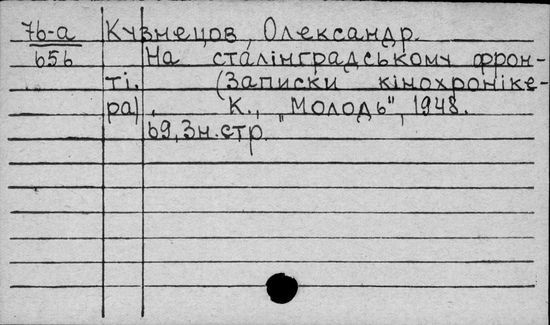 7б-а Кузнецов, Олександр.
656 На сталінградському фрон-
ті. (Записки кінохроніке-
ра). К., "Молодь", 1948.
69,3н.стр.